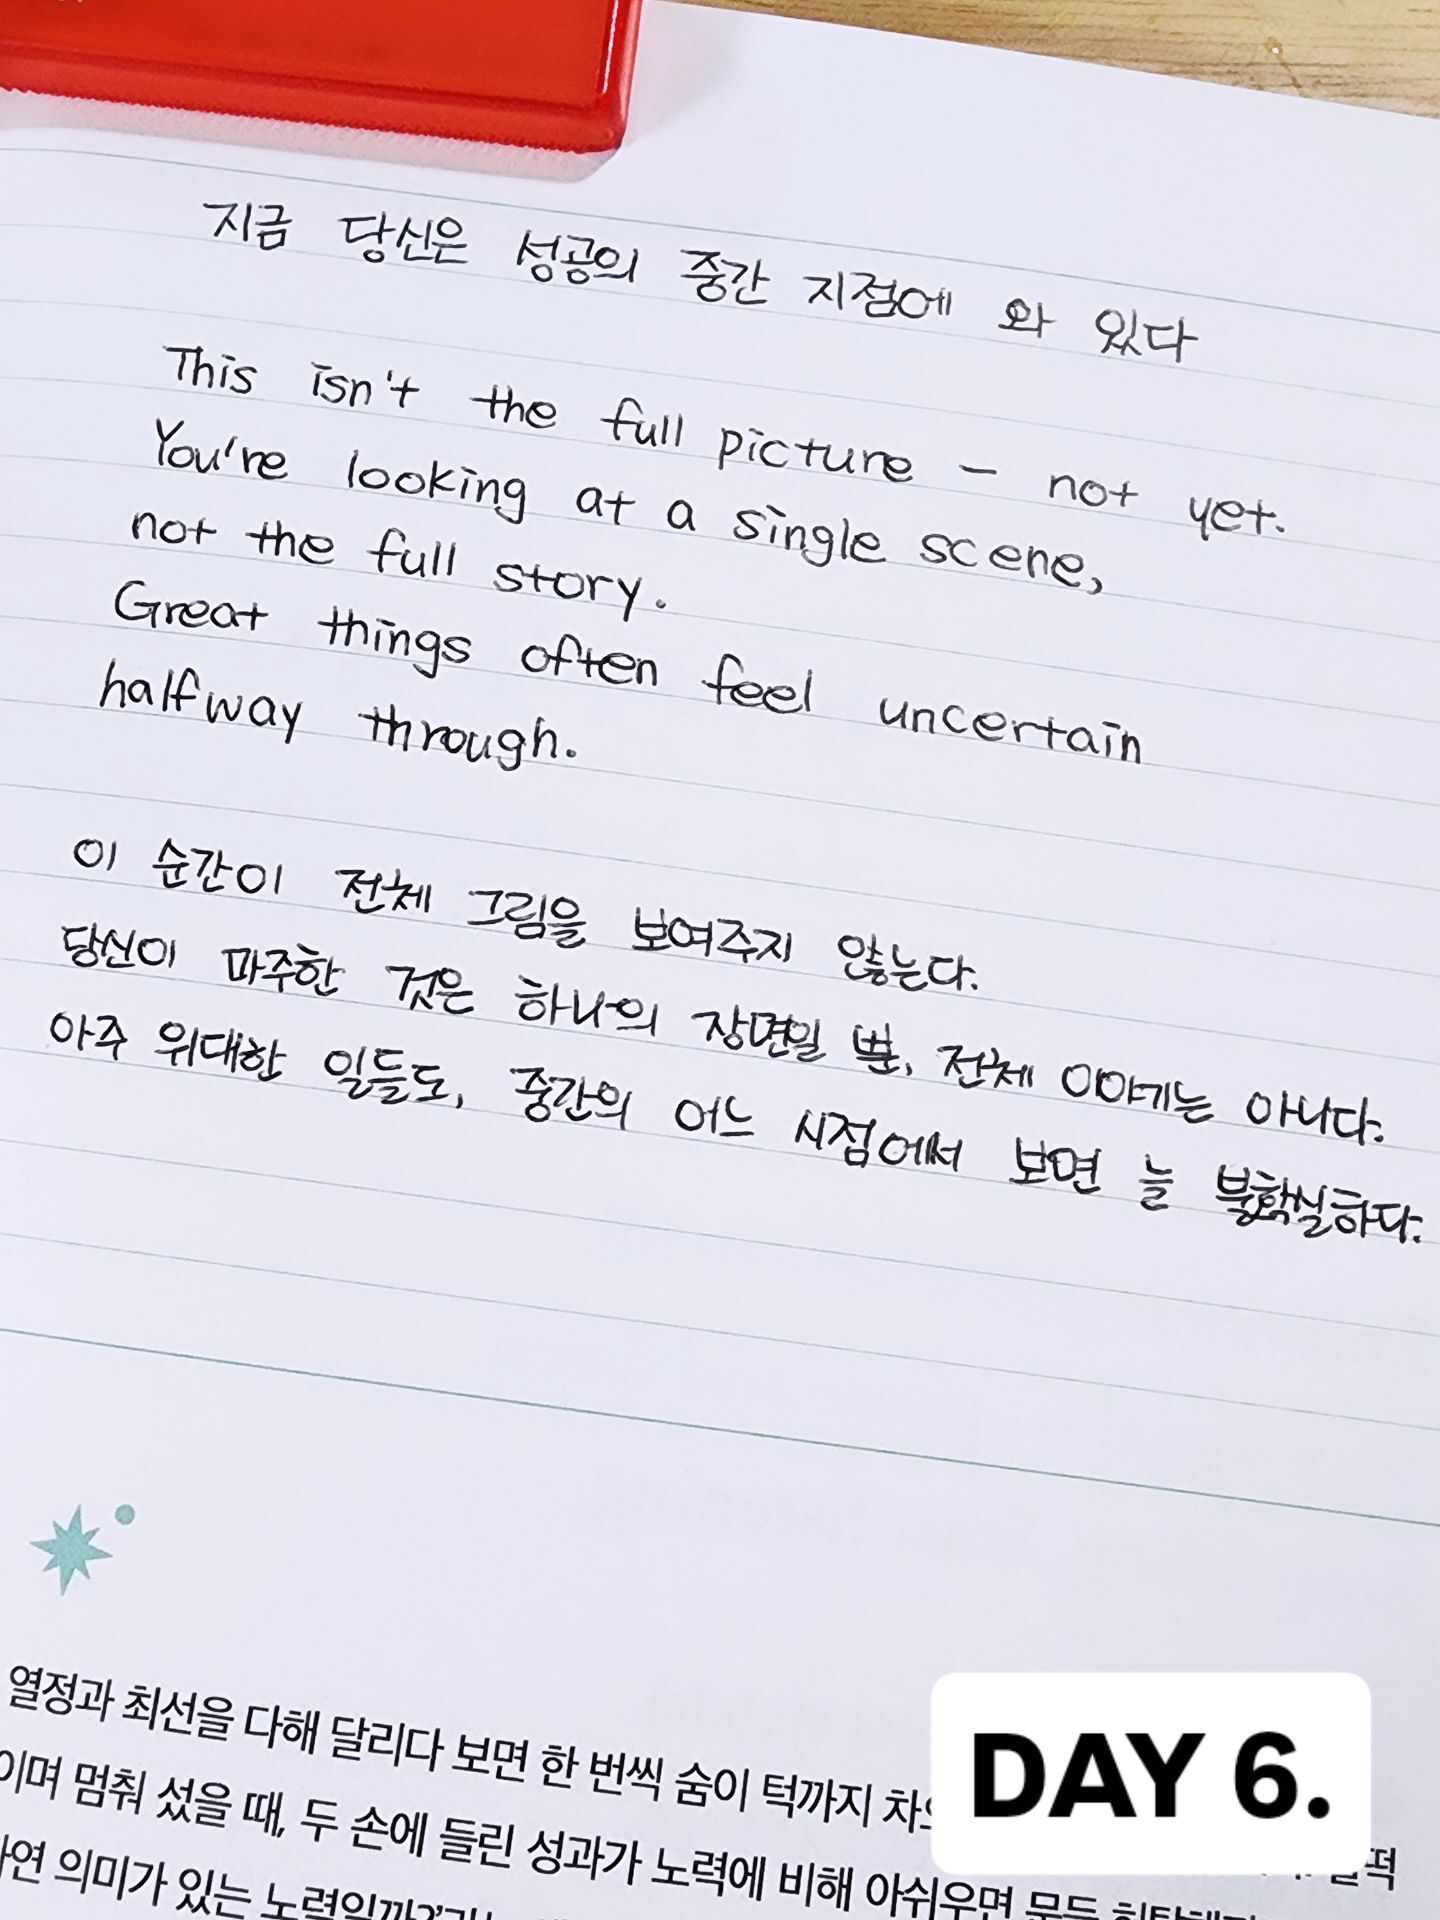 지금 당신은 성공의 중간 지점에 와 있다
This isn't the full picture – not yet.
You're looking at a single scene,
not the full story.
Great things often feel uncertain
halfway through.
이 순간이 전체 그림을 보여주지 않는다.
당신이 마주한 것은 하나의 장면일 뿐, 전체 이야기는 아니다.
아주 위대한 일들도, 중간의 어느 시점에서 보면 늘 불확실하다.
열정과 최선을 다해 달리다 보면 한 번씩 숨이 턱까지
이며 멈춰 섰을 때, 두 손에 들린 성과가 노력에 비해 아쉬우면 문득
의미가 있는
DAY 6.